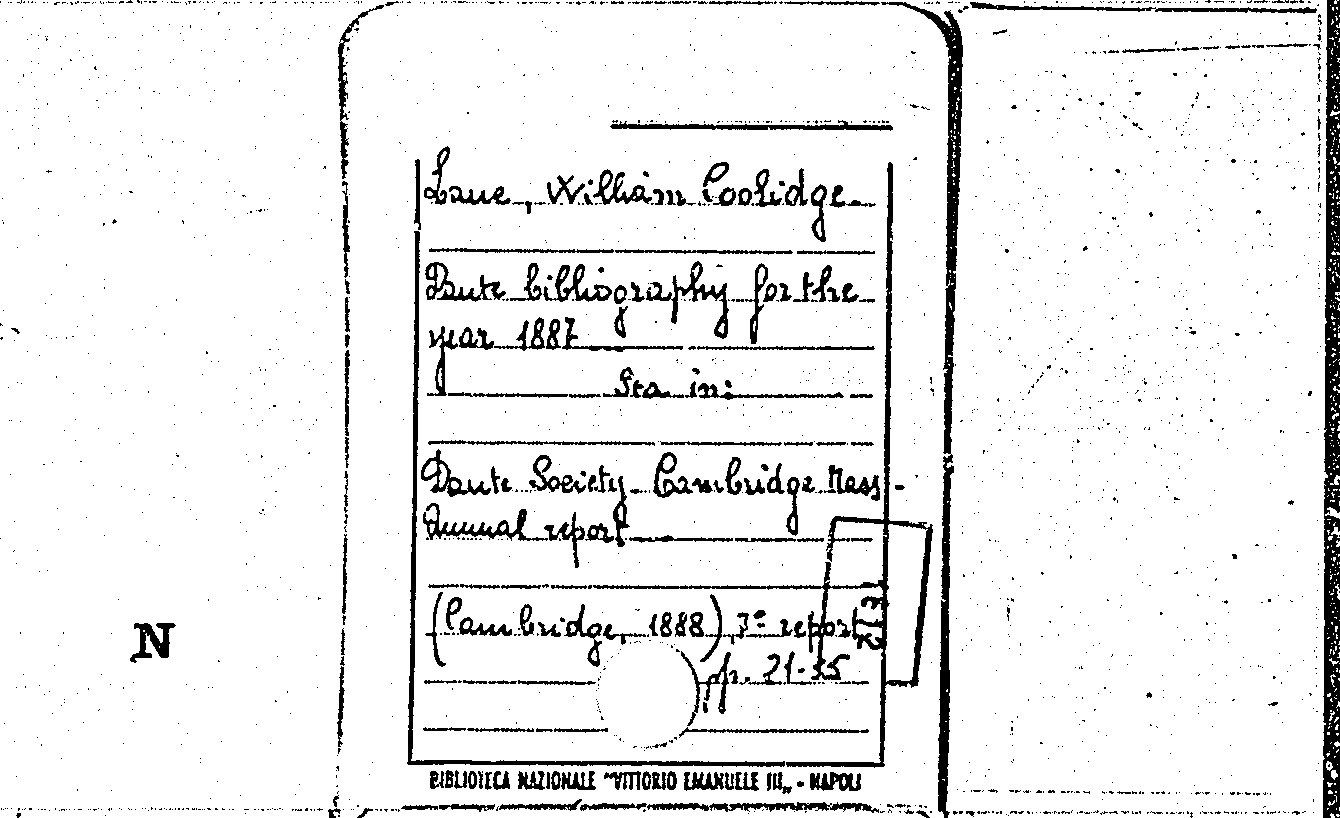 Lane, William Coolidge.
Dante bibliography for the
year 1887
Sta in:
Dante Society. Cambridge Mass.
Annual report
(Cambridge, 1888), 7º report
pp. 21-35
N
BIBLIOTECA NAZIONALE "VITTORIO EMANUELE III„ - NAPOLI